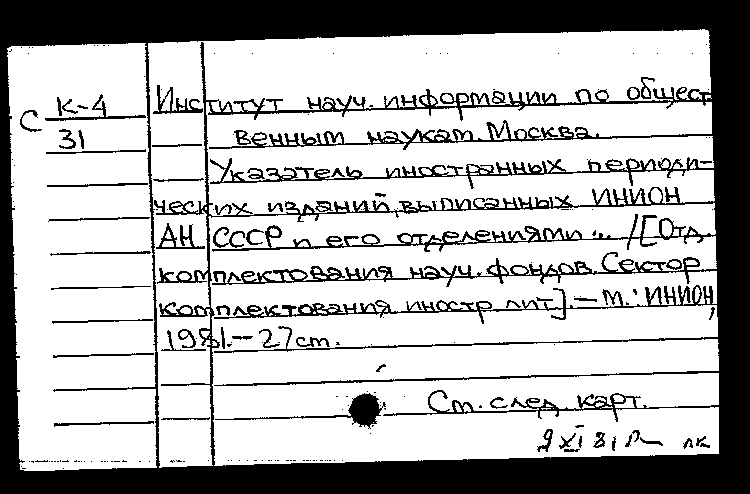 С К-4
31
Институт науч. информации по общест
венным наукам. Москва.
Указатель иностранных периоди-
ческих изданий, выписанных ИНИОН
АН СССР и его отделениями ... /[Отд.
комплектования науч. фондов. Сектор
комплектования иностр лит]. — М.: ИНИОН,
1981. — 27 ст.
См. след. карт.
9 XI 81 лк